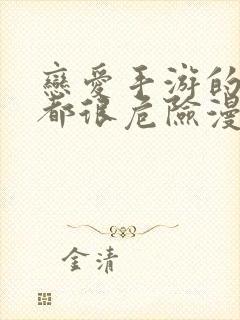 戀愛手游的
都很危險漫
金清